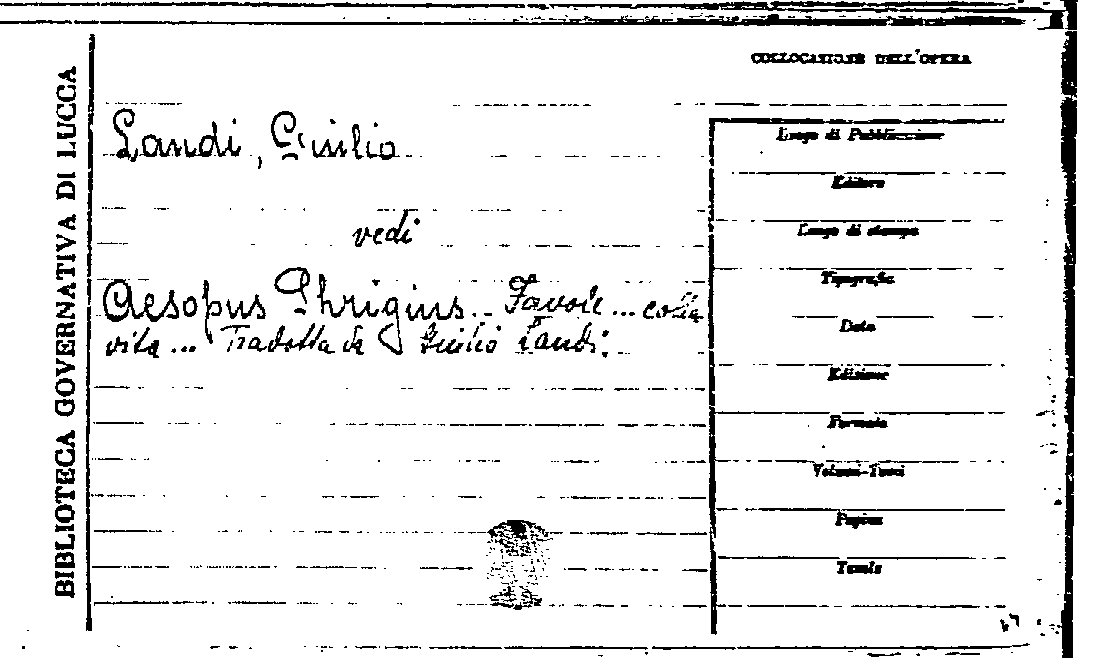 BIBLIOTECA GOVERNATIVA DI LUCCA
COLLOCAZIONE DELL'OPERA
Landi, Giulio
vedi
Aesopus Phrigius.. Favole... colla
vita... Tradotta da Giulio Landi.
Luogo di Pubblicazione
Editore
Luogo di stampa
Tipografia
Data
Edizione
Formato
Volumi-Tomi
Pagine
Tavole